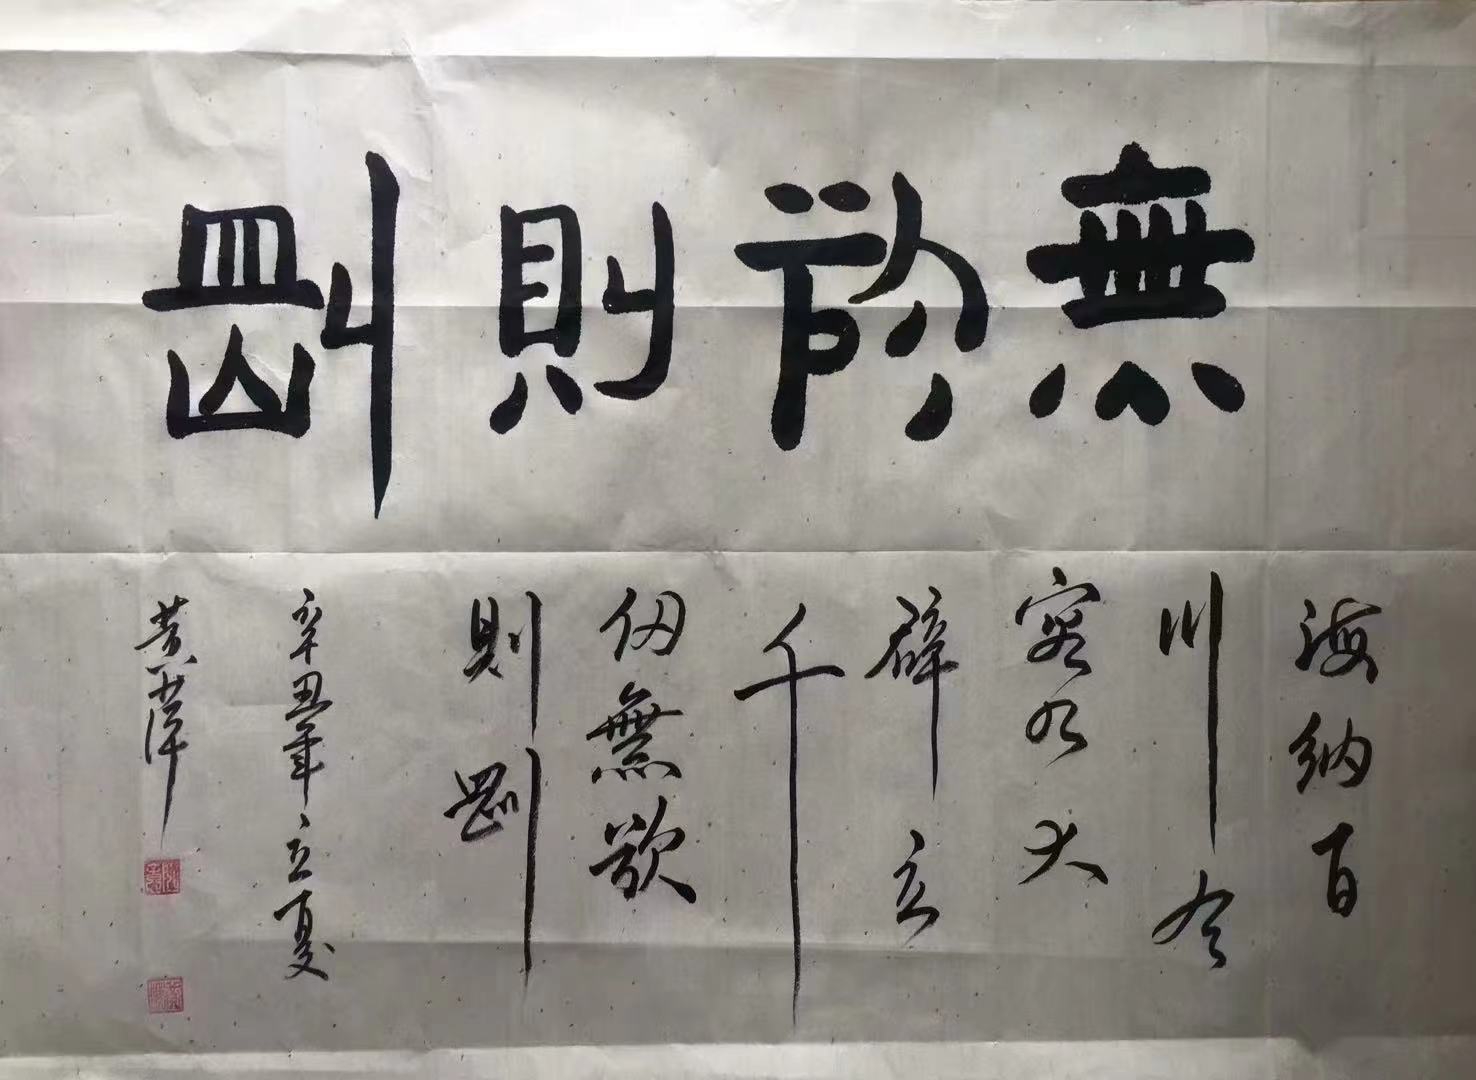 無欲則剛
海納百
川有
容乃大
壁立
千
仞無欲
則剛
辛丑年立夏
黄